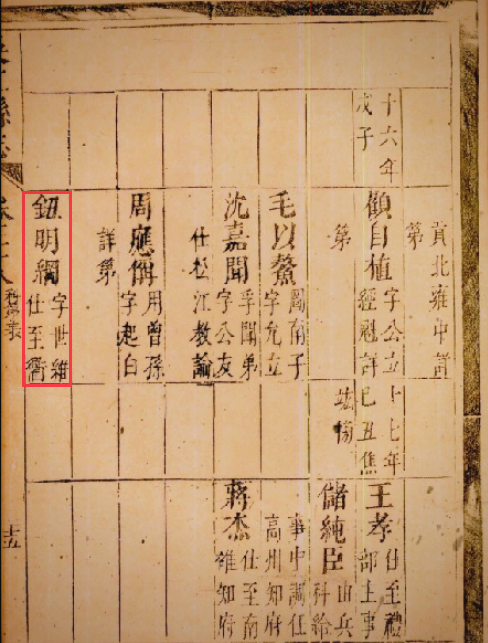 十六年
戊子
貢北雍中詳
第
顧自植 字公立
經魁詳
第
毛以鰲 圖南子
字允立
沈嘉聞 孚聞弟
字公友
仕松江教諭
周應偁 用曾孫
字起白
詳第
鈕明綱 字世維
仕至衢
十七年
己丑焦
竑榜
王孝 仕至禮
部主事
儲純臣 由兵
科給
事中調任
高州知府
蔣杰 仕至南
雄知府
十五